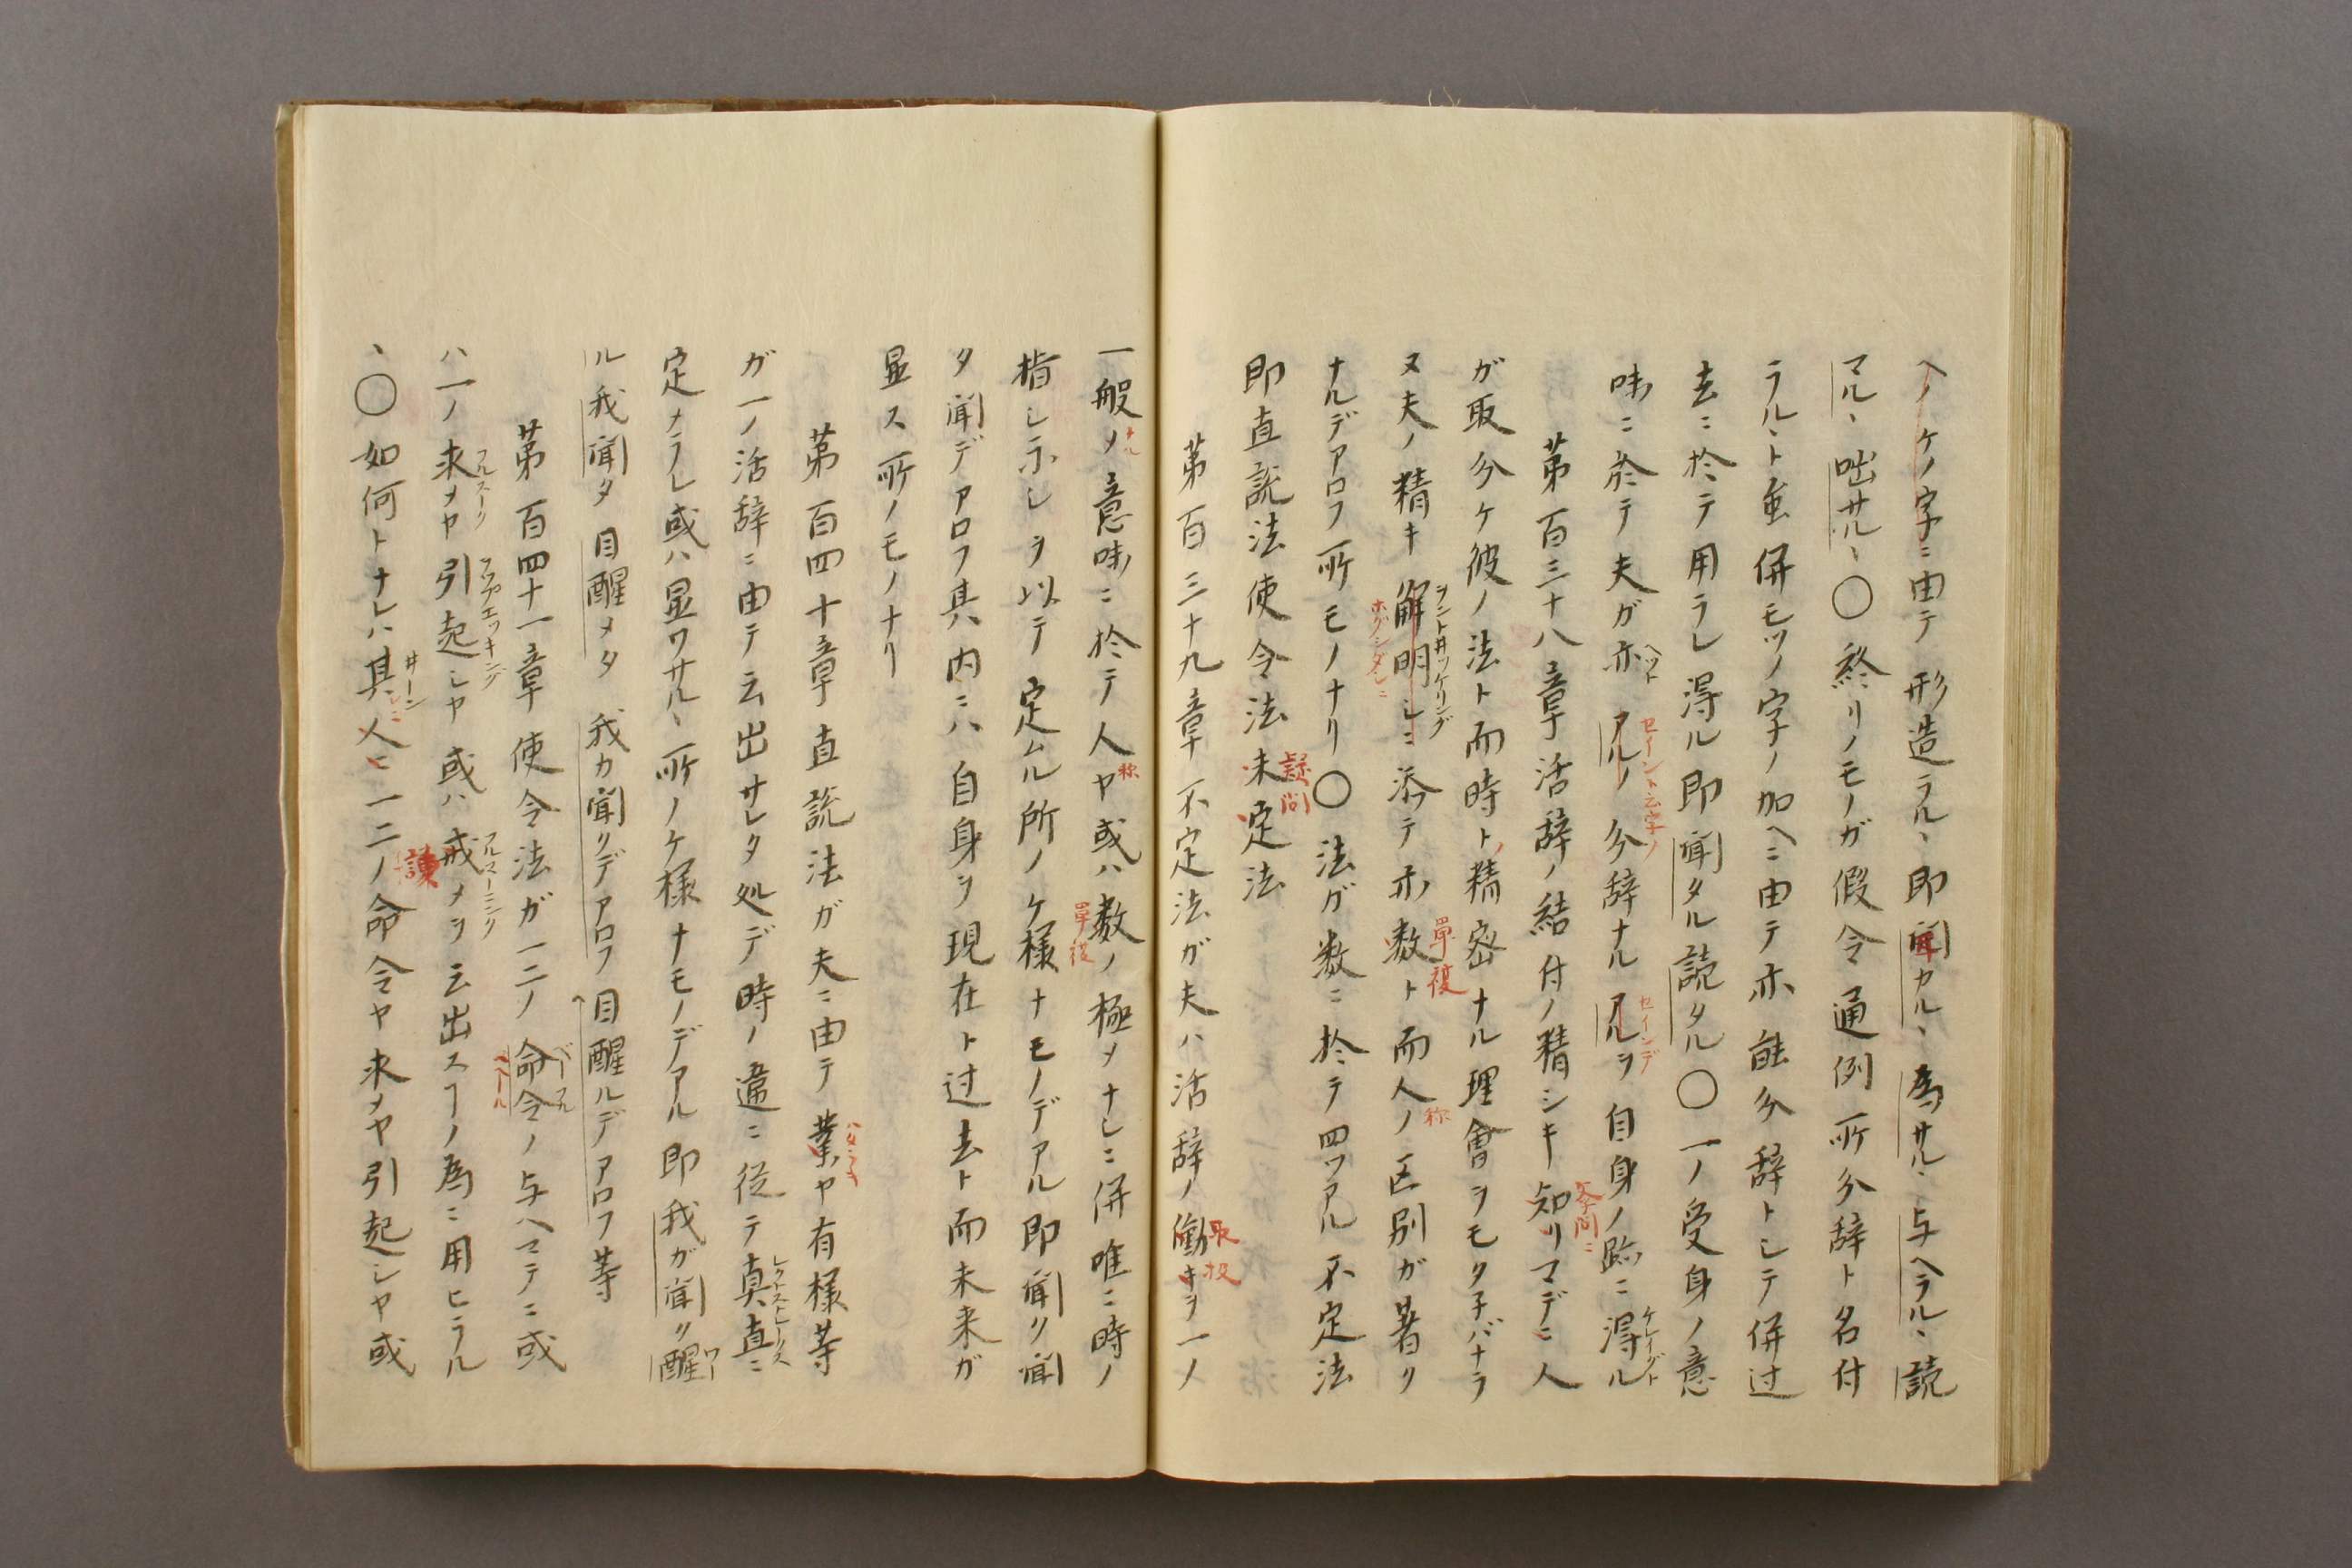 ヘノケノ字ニ由テ形造ラル、即聞カル、為サル、与ヘラル、読
マル、咄サル、〇終リノモノガ假令通例所分辞ト名付
ラル、ト虽併モツノ字ノ加ヘニ由テ亦能分辞トシテ併过
去ニ於テ用ラレ得ル即聞タル読タル〇一ノ受身ノ意
味ニ於テ夫ガ亦アルノ分辞ナルアルヲ自身ノ跡ニ得ル
ヘット
セイント云字ノ
セインデ
ケレイグト
第百三十八章活辞ノ結付ノ精シキ知リマデニ人
ガ取分ケ彼ノ法ト而時ト精密ナル理會ヲモタ子バナラ
ヌ夫ノ精キ解明シニ添テ亦数ト而人ノ区別ガ著ク
ヲント井ッケリング
單複
称
ナルデアロフ所モノナリ〇法ガ数ニ於テ四ツアル不定法
即直説法使令法未定法
疑問
第百三十九章不定法ガ夫ハ活辞ノ働キヲ一ノ
一般ノ意味ニ於テ人ヤ或ハ数ノ極メナシニ併唯ニ時ノ
ナル
称
單複
指シ示シヲ以テ定ムル所ノケ様ナモノデアル即聞ク聞
タ聞デアロフ其内ニハ自身ヲ現在ト过去ト而未来ガ
显ス所ノモノナリ
第百四十章直説法ガ夫ニ由テ業ヤ有様等
ハタラキ
ガ一ノ活辞ニ由テ云出サレタ処デ時ノ違ニ従テ真直ニ
定メラレ或ハ显ワサル、所ノケ様ナモノデアル即我ガ聞ク醒
ル我聞タ目醒メタ我カ聞クデアロフ目醒ルデアロフ等
第百四十一章使令法ガ一二ノ命令ノ与ヘマテニ或
ベーフル
ハ一ノ求メヤ引起シヤ或ハ戒メヲ云出スヿノ為ニ用ヒラル
フルスーク
フルマーニング
諌
、〇如何トナレハ其人ニ一二ノ命令ヤ求メヤ引起シヤ或